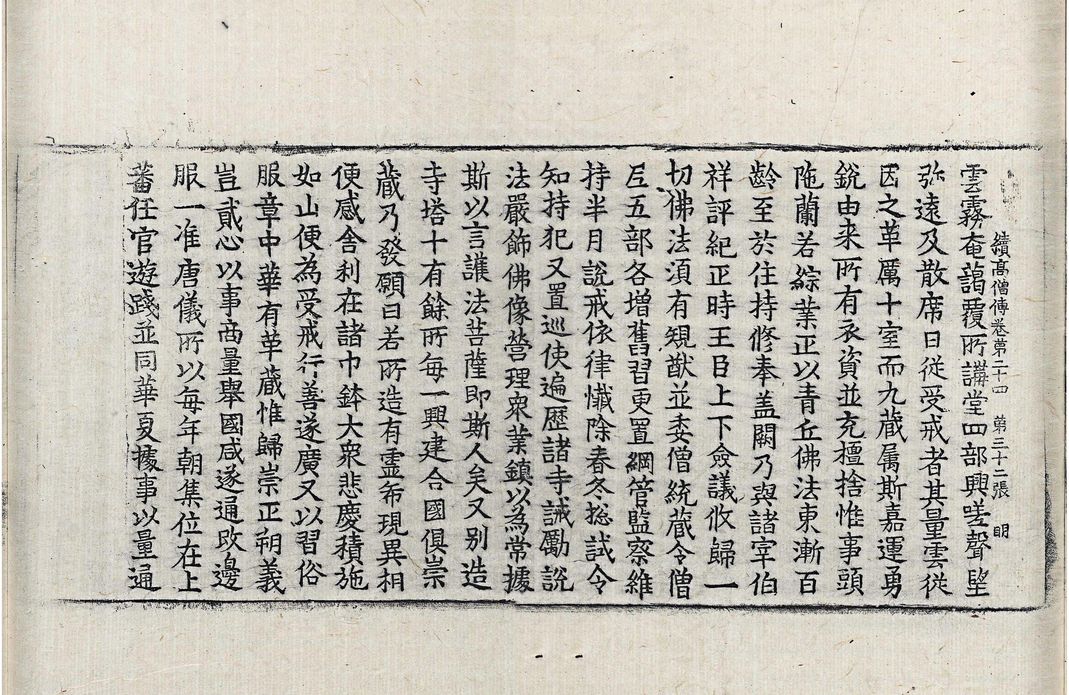 續高僧傳卷第二十四 第三十二張 明
雲霧奄藹覆所講堂四部興嗟聲望
弥遠及散席日從受戒者其量雲從
因之革厲十室而九藏属斯嘉運勇
銳由來所有衣資並充擅捨惟事頭
陁蘭若綜業正以青丘佛法東漸百
齡至於住持修奉盖闕乃與諸宰伯
祥評紀正時王臣上下僉議攸歸一
切佛法須有䂓猷並委僧統藏令僧
尼五部各增舊習更置綱管監察維
持半月說戒依律懺除春冬惣試令
知持犯又置巡使遍歷諸寺誡勵說
法嚴飾佛像營理衆業鎮以為常據
斯以言護法菩薩即斯人矣又別造
寺塔十有餘所每一興建合國俱崇
藏乃發願曰若所造有霊希現異相
便感舍利在諸巾鉢大衆悲慶積施
如山便為受戒行善遂廣又以習俗
服章中華有革藏惟歸崇正朔義
豈貳心以事商量舉國咸遂通改邊
服一准唐儀所以每年朝集位在上
蕃任官遊踐並同華夏據事以量通